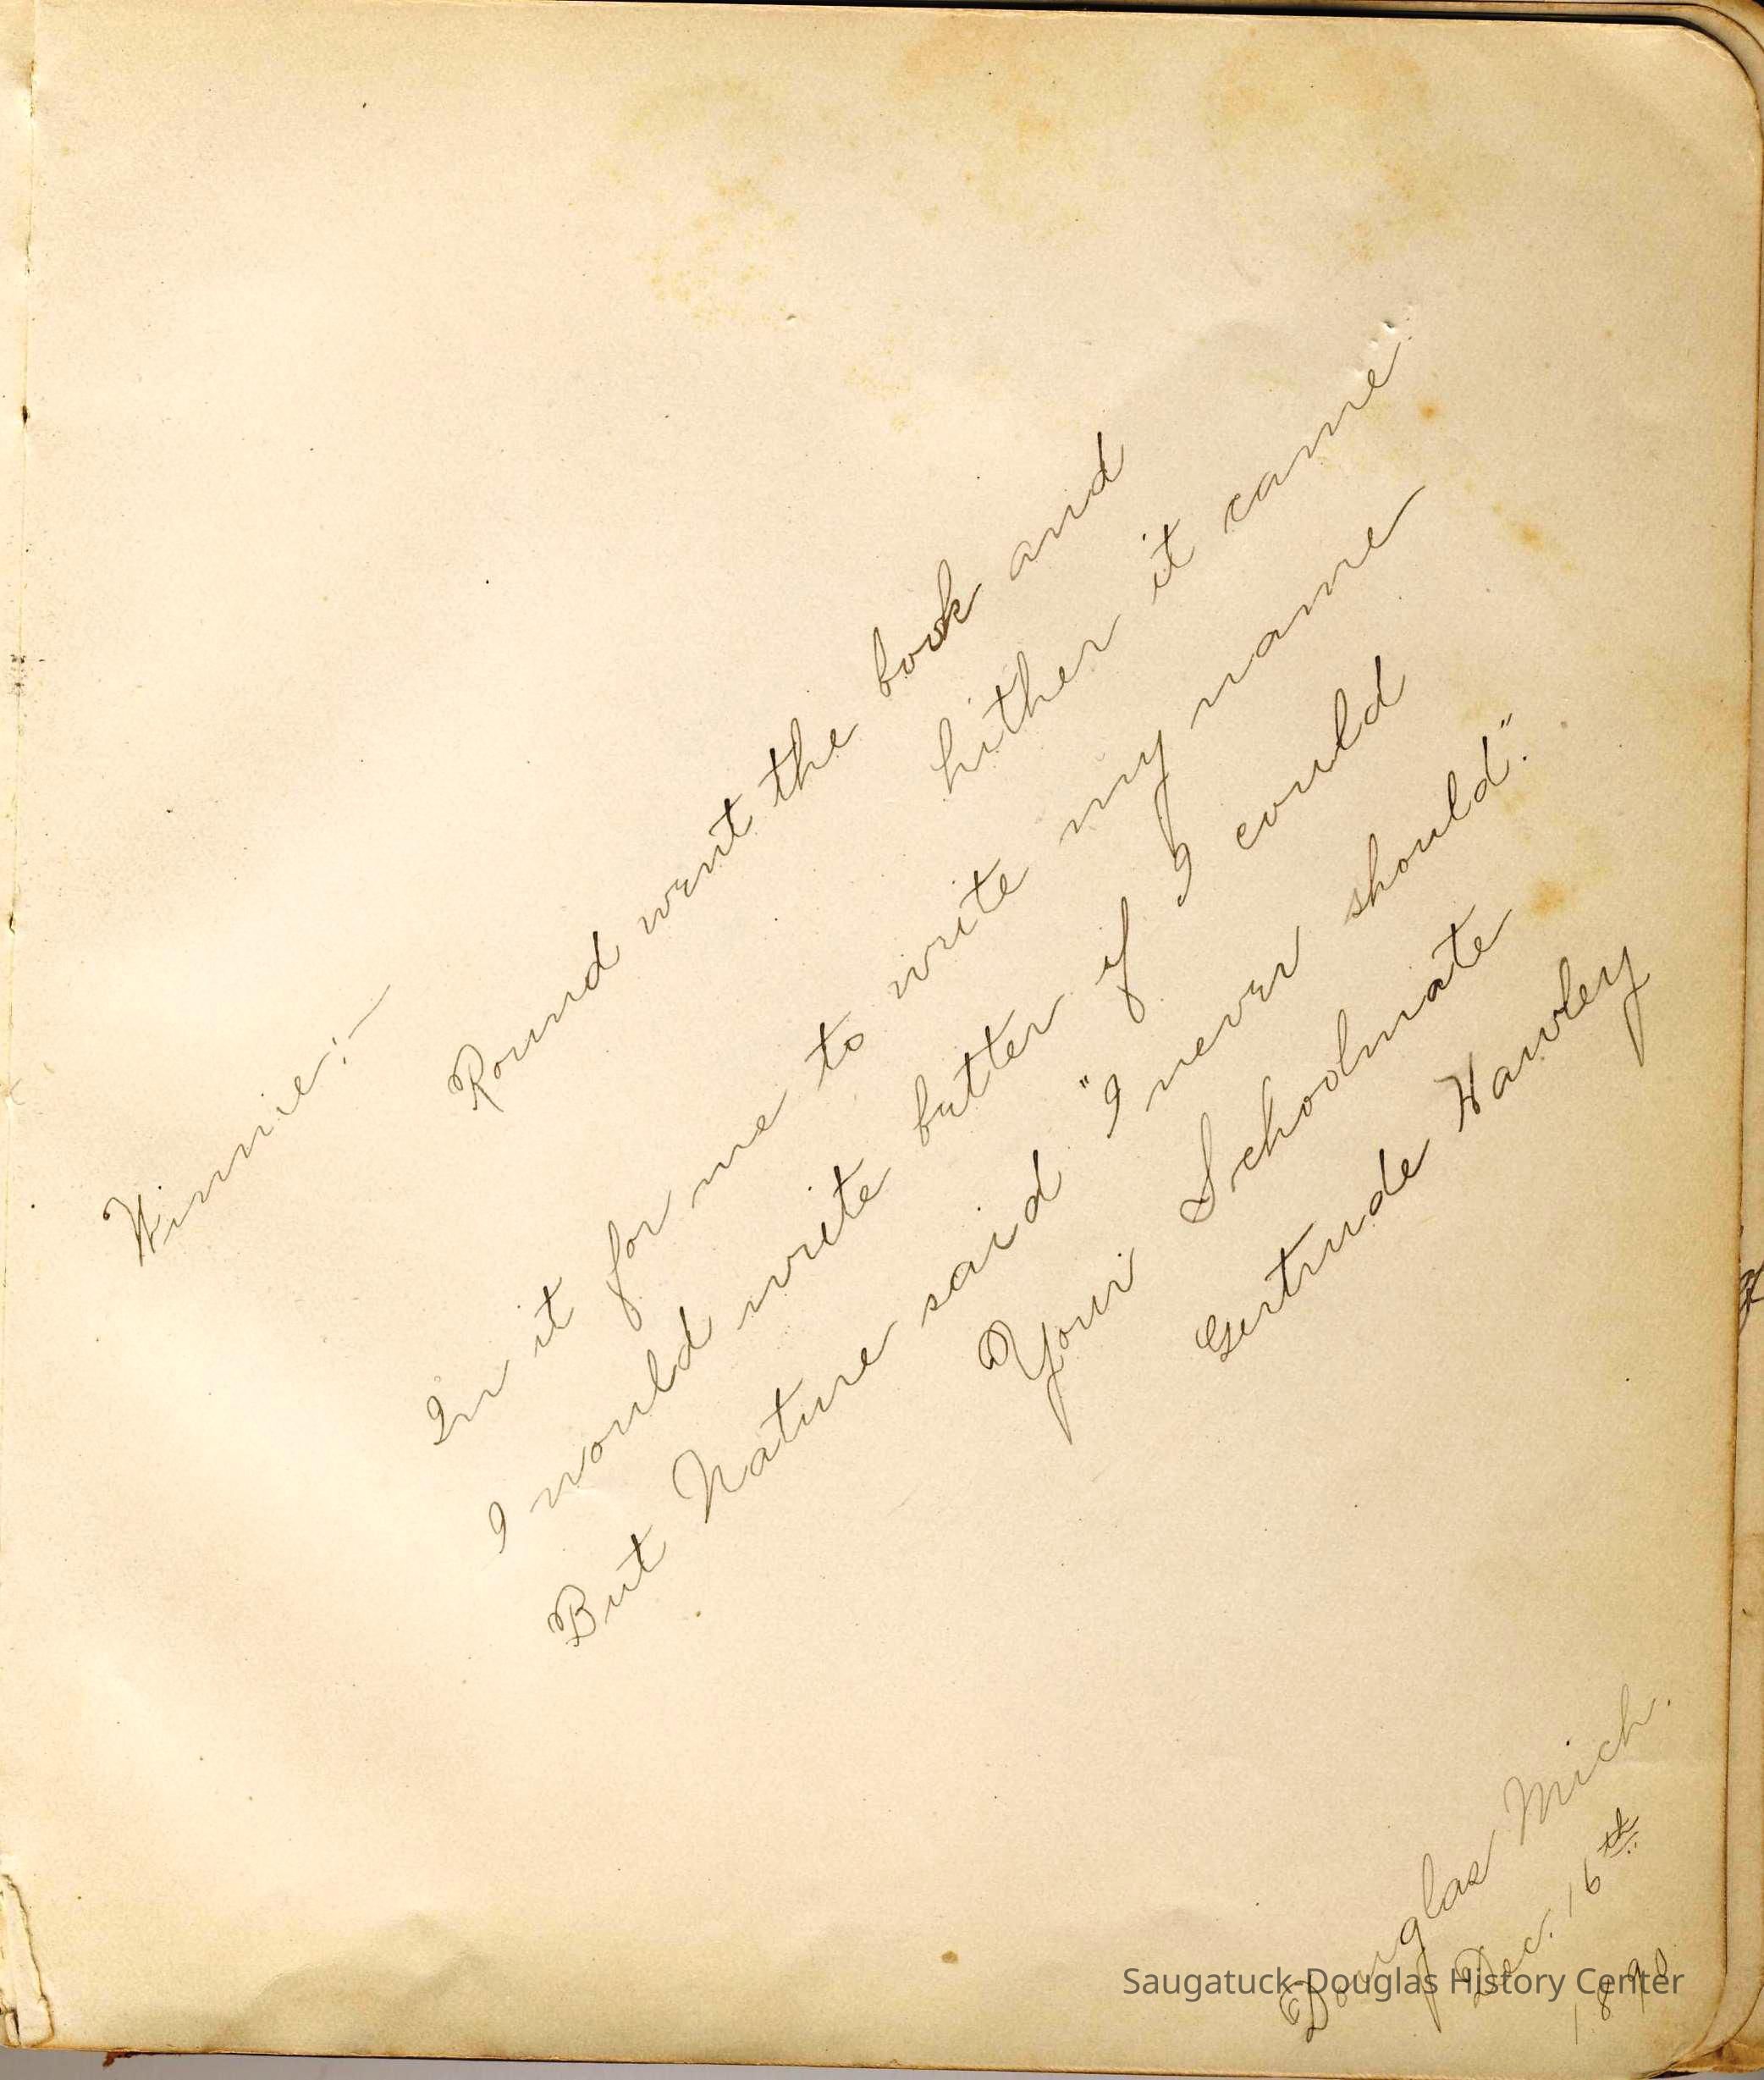 Winnie:—
Round went the book and
hither it came
In it for me to write my name
I would write better if I could
But Nature said "I never should".
Your Schoolmate
Gertrude Hawley
Douglas Mich.
Dec. 16th
1890
Saugatuck-Douglas History Center